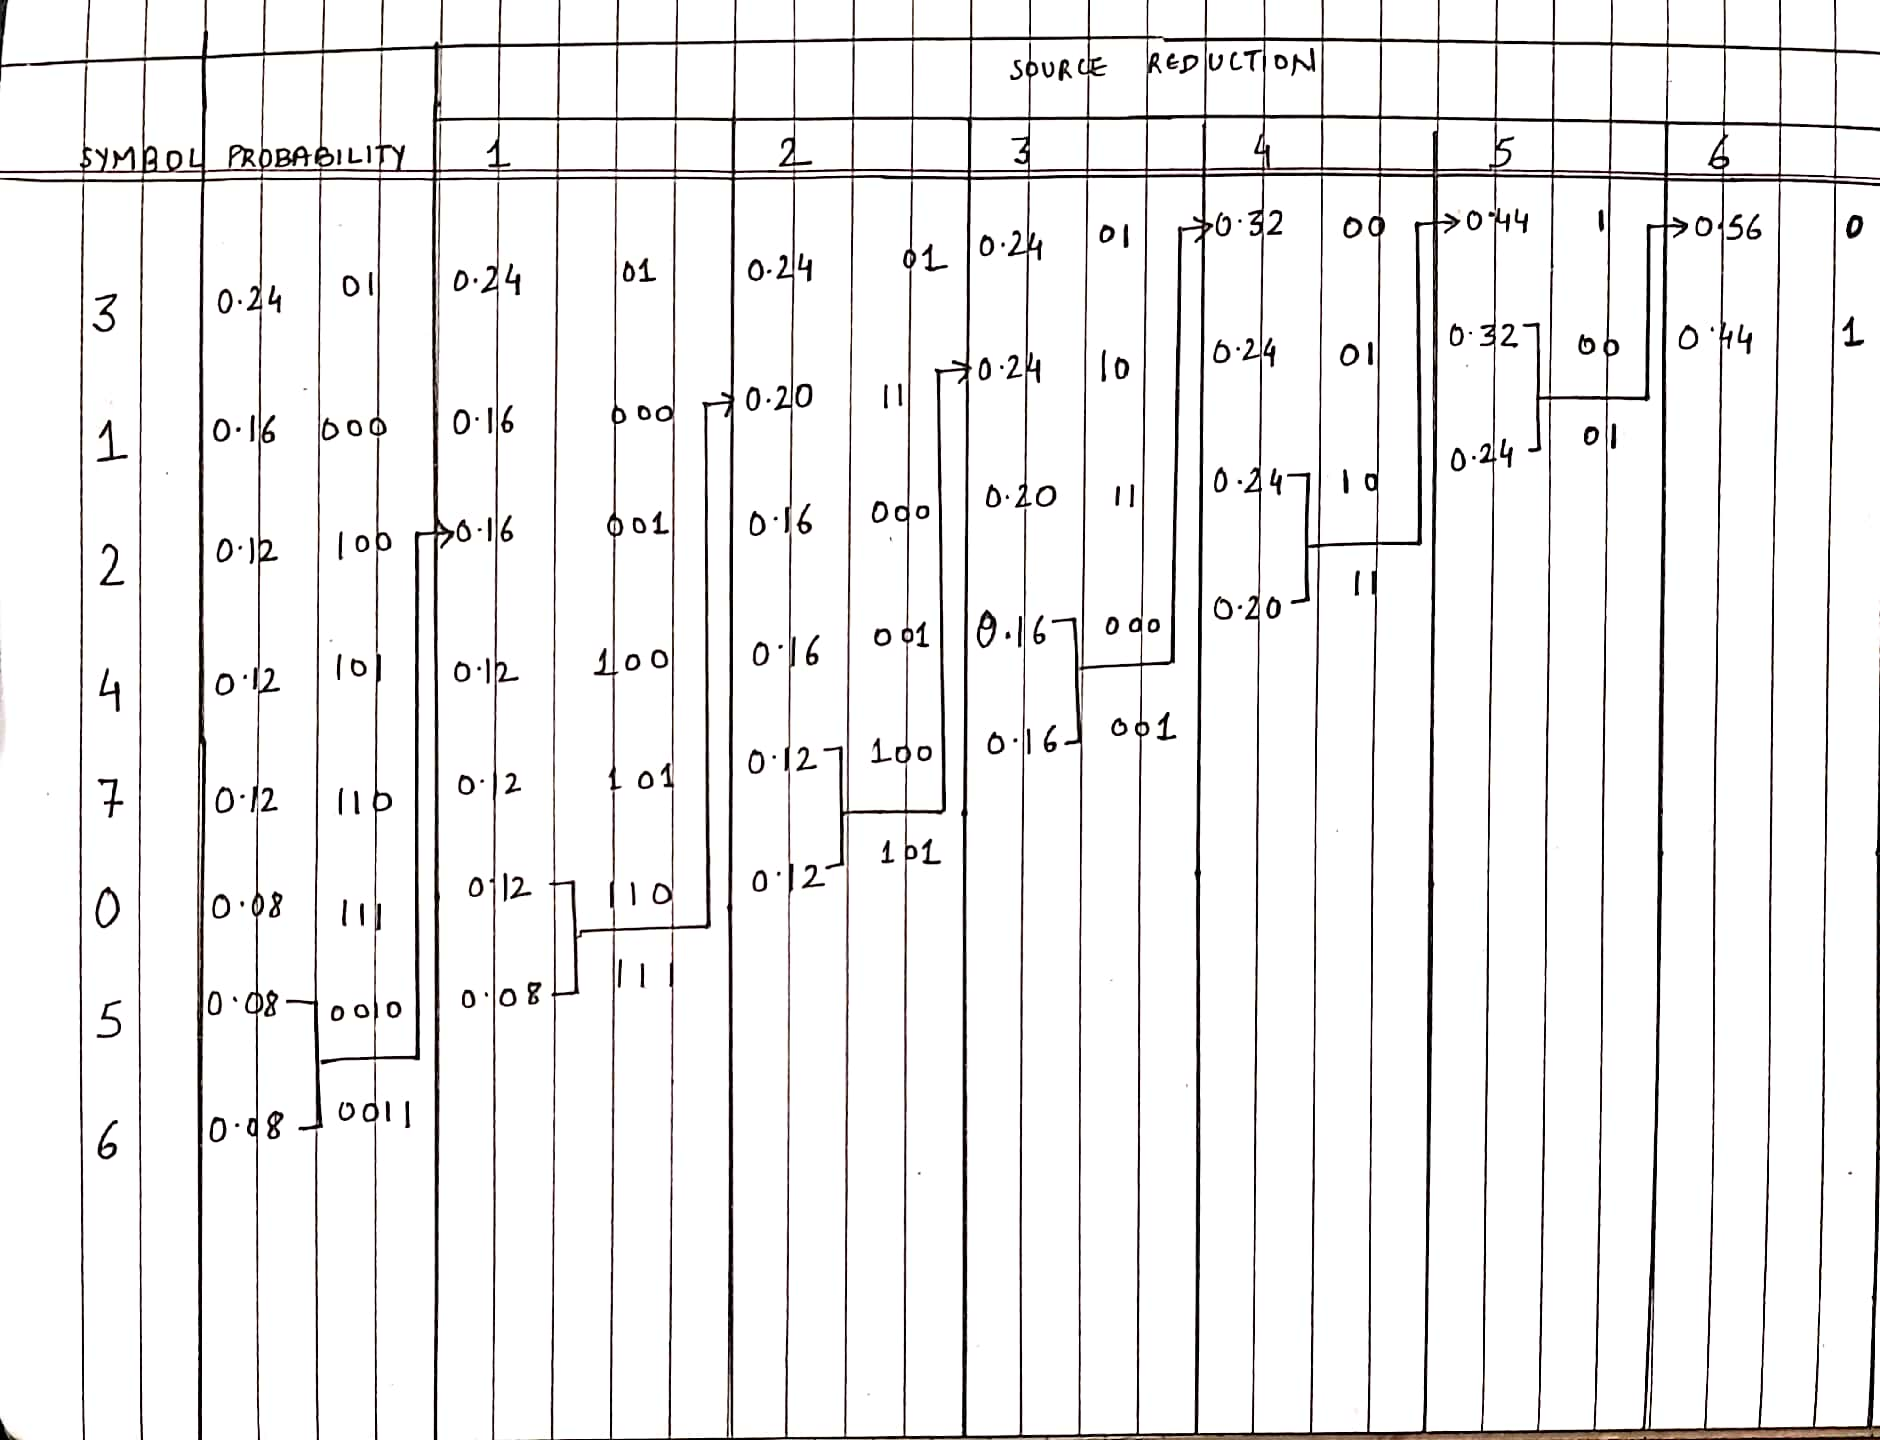 SOURCE REDUCTION
SYMBOL PROBABILITY 1 2 3 4 5 6
3 0.24 01 0.24 01 0.24 01 0.24 01 0.32 00 0.44 1 0.56 0
1 0.16 000 0.16 000 0.20 11 0.24 10 0.24 01 0.32 00 0.44 1
2 0.12 100 0.16 001 0.16 000 0.20 11 0.24 10 0.24 01
4 0.12 101 0.12 100 0.16 001 0.16 000 0.20 11
7 0.12 110 0.12 101 0.12 100 0.16 001
0 0.08 111 0.12 110 0.12 101
5 0.08 0010 0.08 111
6 0.08 0011